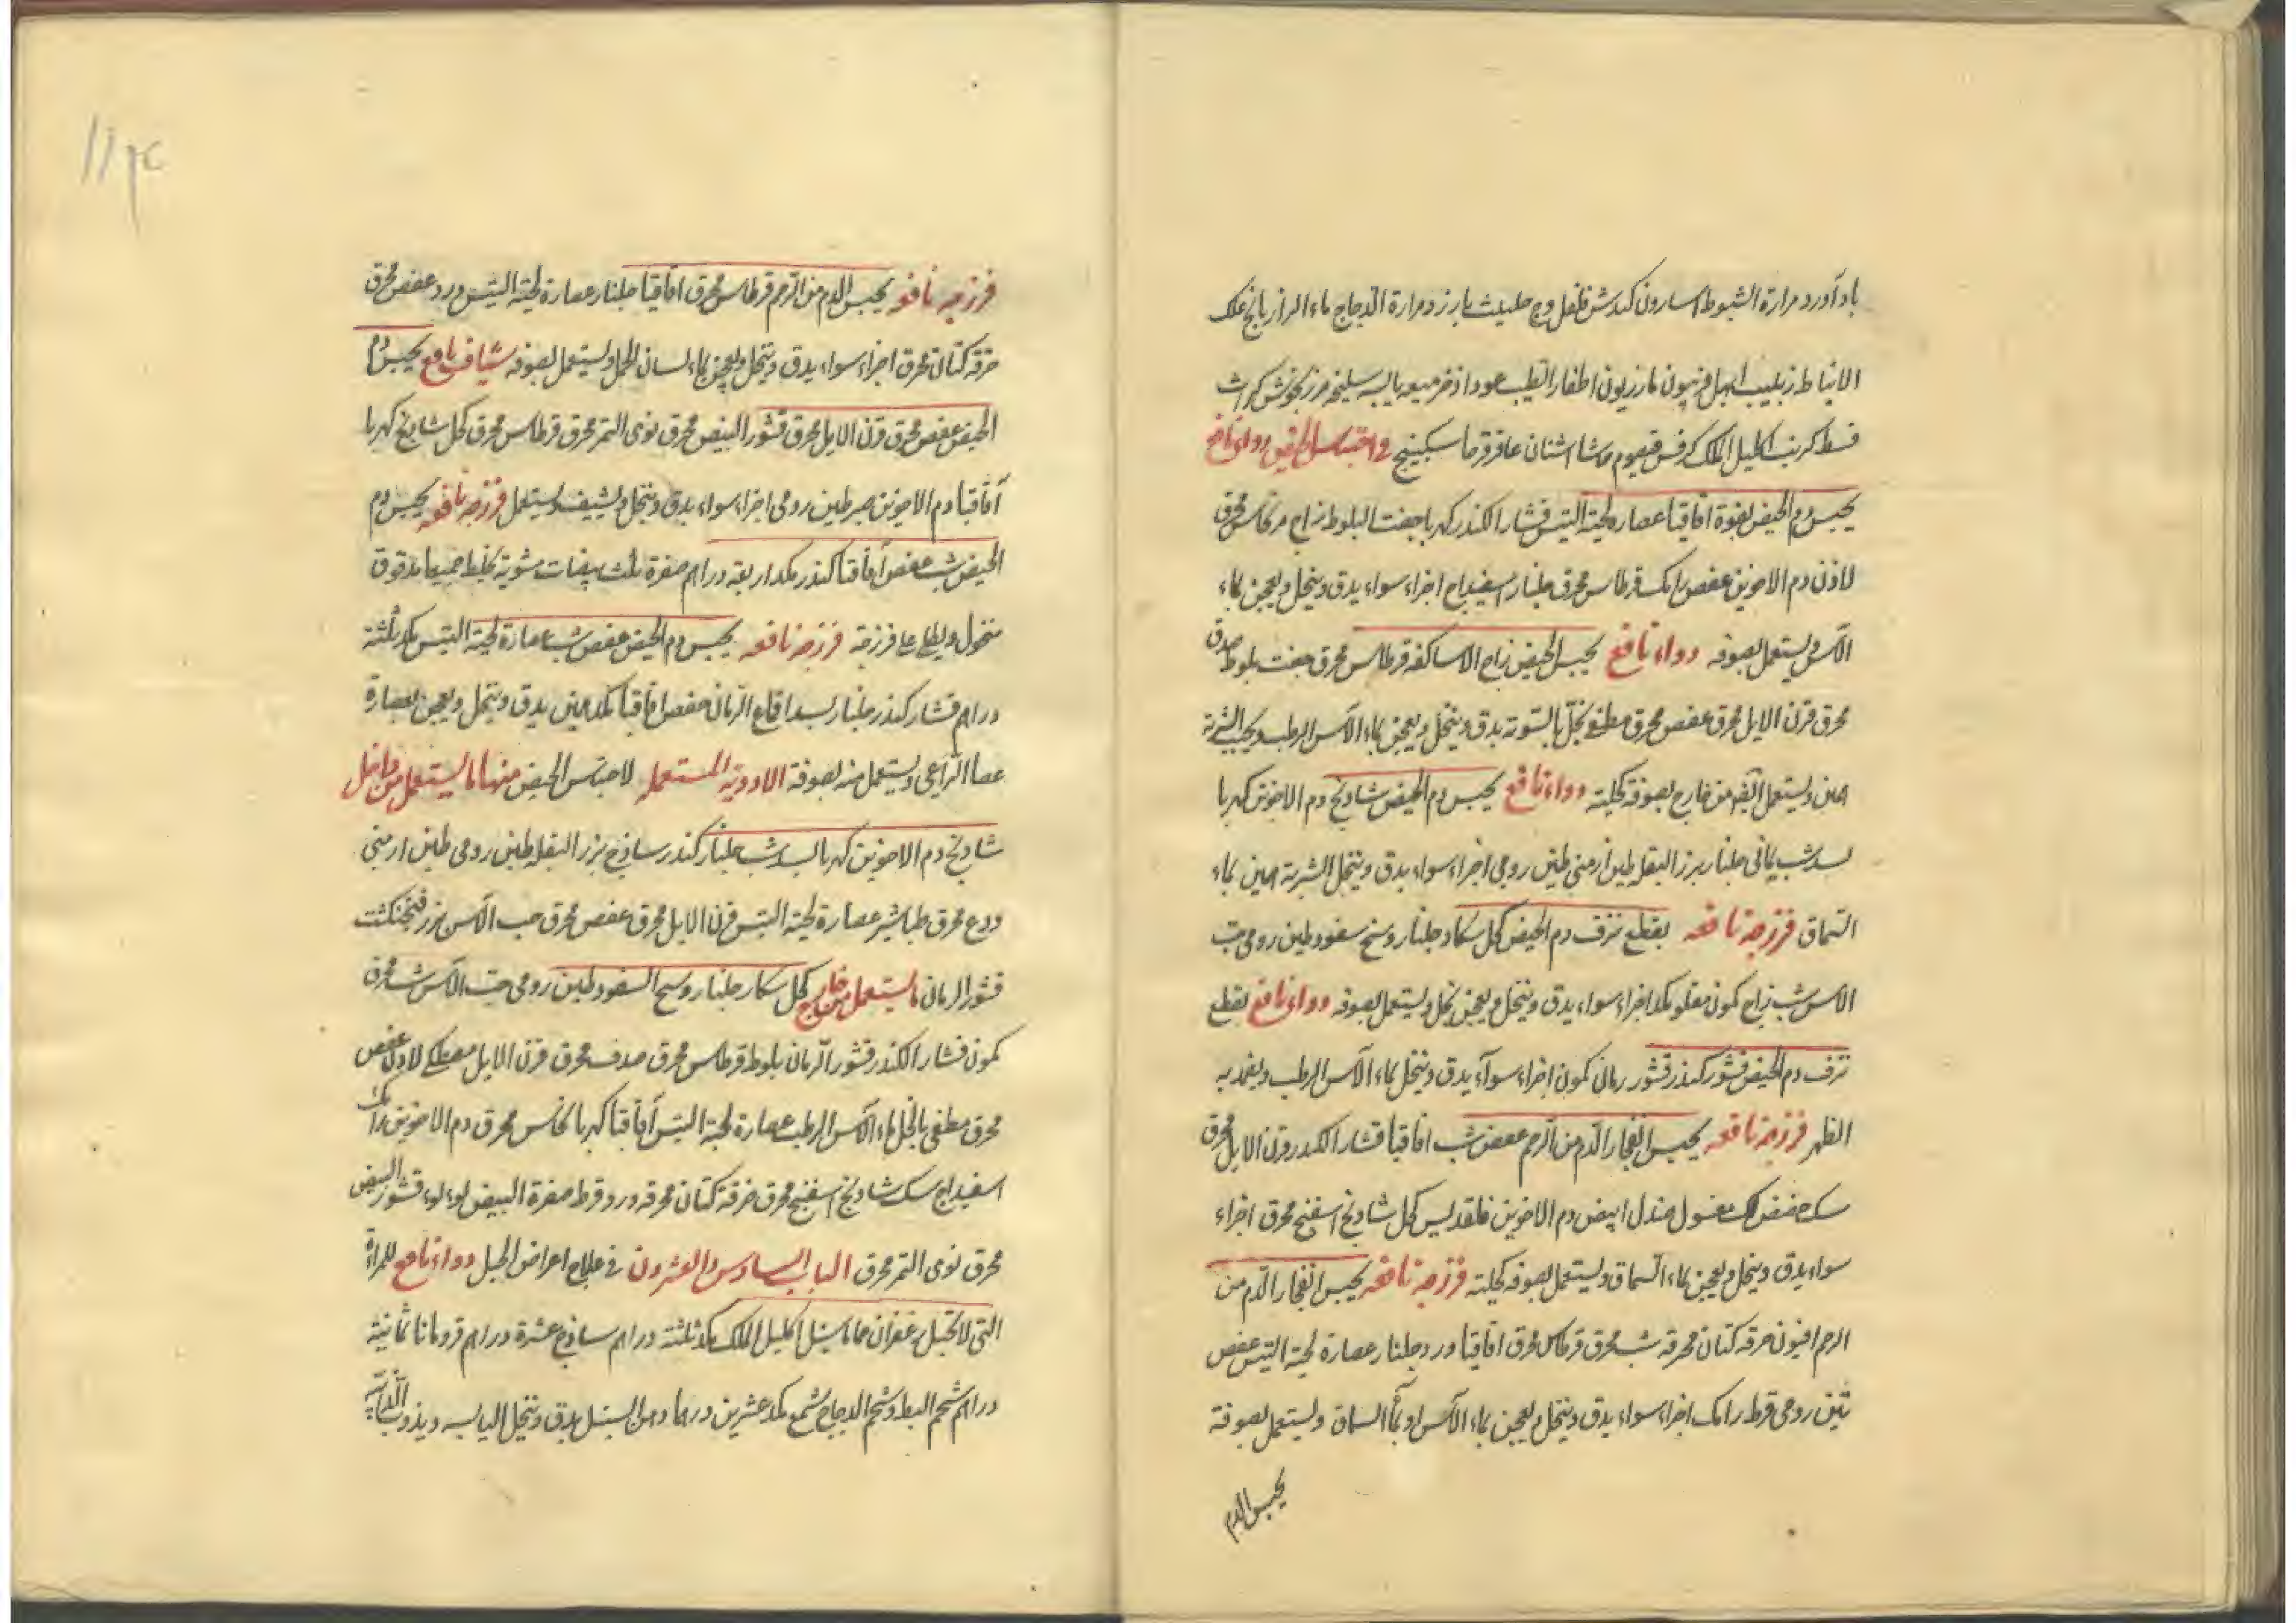 بادآورد مرارة الشبوط اسارون كندش فلفل وج حلتيت بارزد مرارة الدجاج ماء الرازيانج علك
الانباط زبيب ابهل فربيون مازريون اظفار الطيب عود اذخر ميعه يابسه سليخه مرزنجوش كراث
قسط كرنب اكليل الملك كرفس قيصوم اشنان عاقرقرحا سكبينج في احتباس الحيض دواء نافع
يحبس دم الحيض بقوة اقاقيا عصارة لحية التيس قشار الكندر كهربا جفت البلوط زاج محرق
لاذن دم الاخوين عفص رامك قرطاس محرق جلنار اسفيداج اجزاء سواء يدق وينخل ويعجن بماء
الآس ويستعمل بصوفه دواء نافع يحبس الحيض زاج الاساكفه قرطاس محرق جفت بلوط صدف
محرق قرن الايل محرق عفص محرق مطفى بخل بالسوية يدق وينخل ويعجن بماء الآس الرطب ويحبب الشربة
ويستعمل ايضا من خارج بصوفة دواء نافع يحبس دم الحيض شاذنج دم الاخوين كهربا
بسد شب يماني جلنار بزر البقله طين ارمني طين رومي اجزاء سواء يدق وينخل الشربة بماء
السماق فرزجة نافعه يقطع نزف دم الحيض كحل جلنار وسخ سفود طين رومي حب
الآس شب زاج كمون مقلو اجزاء سواء يدق وينخل ويعجن بخل ويستعمل بصوفه دواء نافع يقطع
نزف دم الحيض قشور كندر قشور رمان كمون اجزاء سواء يدق وينخل بماء الآس الرطب ويضمد به
الظهر فرزجة نافعه يحبس انفجار الدم من الرحم عفص شب اقاقيا قشار الكندر قرن الايل محرق
سك حضض لك مغسول صندل ابيض دم الاخوين قلقديس كحل شاذنج اسفنج محرق اجزاء
سواء يدق وينخل ويعجن بماء السماق ويستعمل بصوفه فرزجة نافعه يحبس انفجار الدم من
الرحم افيون خرقه كتان محرقه شب محرق قرطاس محرق اقاقيا ورد جلنار عصارة لحية التيس عفص
رومي قرط رامك اجزاء سواء يدق وينخل ويعجن بماء الآس او بماء السماق ويستعمل بصوفة
يحبس الدم
فرزجه نافعه يحبس الدم من الرحم قرطاس محرق اقاقيا جلنار عصارة لحية التيس ورد عفص محرق
خرقه كتان محرق اجزاء سواء يدق وينخل ويعجن بماء لسان الحمل ويستعمل بصوفه شياف نافع يحبس دم
الحيض عفص محرق قرن الايل محرق قشور البيض محرق نوى التمر محرق قرطاس محرق كحل شاذنج كهربا
اقاقيا دم الاخوين طين رومي اجزاء سواء يدق وينخل ويشيف ويستعمل فرزجه نافعه يحبس دم
الحيض شب عفص اقاقيا كندر اربعه دراهم صفرة ثلث بيضات مشوية يخلط جميعا مدقوق
منخول ويطلى على فرزجة فرزجة نافعه يحبس دم الحيض عفص شب عصارة لحية التيس ثلثة
دراهم قشار كندر جلنار بسد اقماع الرمان عفص اقاقيا يدق وينخل ويعجن بعصارة
عصا الراعي ويستعمل منه بصوفة الادوية المستعمله لاحتباس الحيض منها ما يستعمل من داخل
شاذنج دم الاخوين كهربا بسد شب جلنار كندر ساذج بزر البقله طين رومي طين ارمني
ودع محرق طباشير عصارة لحية التيس قرن الايل محرق عفص محرق حب الآس بزر فنجنكشت
قشور الرمان ما يستعمل من خارج كحل جلنار وسخ السفود طين رومي حب الآس شب محرق
كمون قشار الكندر قشور الرمان بلوط قرطاس محرق صدف محرق قرن الايل مصطكى لاذن عفص
محرق مطفى بالخل ماء الآس الرطب عصارة لحية التيس اقاقيا كهربا نحاس محرق دم الاخوين رامك
اسفيداج سك شاذنج اسفنج محرق خرقة كتان محرقه ورد قرط صفرة البيض لؤلؤ قشور البيض
محرق نوى التمر محرق الباب السادس والعشرون في علاج اعراض الحبل دواء نافع للمراة
التي لا تحبل زعفران حماما سنبل اكليل الملك ثلثة دراهم ساذج عشرة دراهم قردمانا ثمانية
دراهم شحم البط وشحم الدجاج شمع عشرين درهما دهن السنبل يدق وينخل اليابسه ويذوب